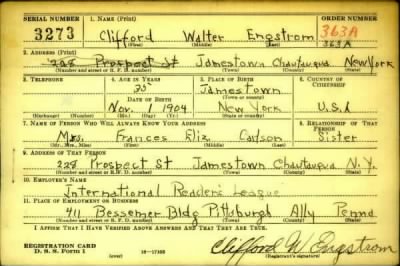 SERIAL NUMBER 1. NAME (Print) ORDER NUMBER
3273 Clifford Walter Engstrom 363A
(First) (Middle) (Last) 363A
2. ADDRESS (Print)
228 Prospect St Jamestown Chautauqua New York
(Number and street or R. F. D. number) (Town) (County) (State)
3. TELEPHONE 4. AGE IN YEARS 5. PLACE OF BIRTH 6. COUNTRY OF CITIZENSHIP
35 Jamestown
DATE OF BIRTH (Town or county)
Nov. 1 1904 New York U.S.A
(Mo.) (Day) (Yr.) (State or country)
7. NAME OF PERSON WHO WILL ALWAYS KNOW YOUR ADDRESS 8. RELATIONSHIP OF THAT PERSON
Mrs. Frances Eliz Carlson Sister
(Mr., Mrs., Miss) (First) (Middle) (Last)
9. ADDRESS OF THAT PERSON
228 Prospect St Jamestown Chautauqua N.Y.
(Number and street or R. F. D. number) (Town) (County) (State)
10. EMPLOYER'S NAME
International Readers League
11. PLACE OF EMPLOYMENT OR BUSINESS
411 Bessemer Bldg Pittsburgh Ally Penna
(Number and street or R. F. D. number) (Town) (County) (State)
I AFFIRM THAT I HAVE VERIFIED ABOVE ANSWERS AND THAT THEY ARE TRUE.
REGISTRATION CARD
D. S. S. Form 1 (over) Clifford W. Engstrom
(Registrant's signature)